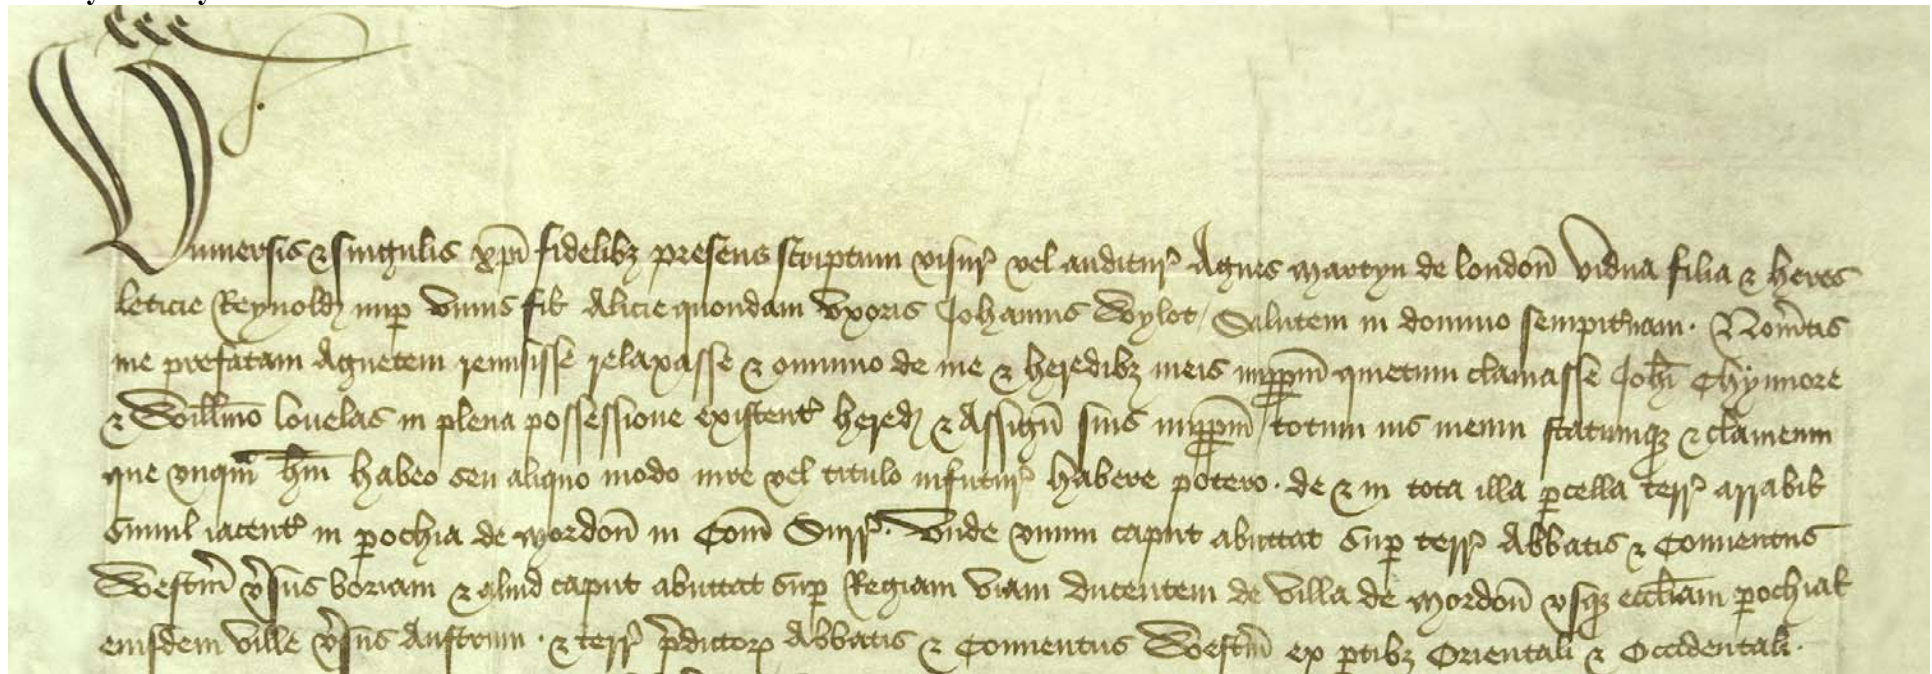 Uniuersis & singulis xpi fidelibz presens scriptum visur' vel auditur' Agnes Martyn de london' vidua filia & heres
leticie Reynold' nup' vnius fil' Alicie quondam vxoris Johannis Wylot / Salutem in domino sempit'nam . Nou'itis
me prefatam Agnetem remisisse relaxasse & omnino de me & heredibz meis imppm quietum clamasse Joh'i Chynnore
& Will'mo louelas in plena possessione existent' hered' & Assign' suis imppm / totum ius meum statumqz & clameum
que vnqm' h'm habeo seu aliquo modo iure vel titulo infutur' habere potero . de & in tota illa p'cella terr' arrabil'
simul iacent' in p'ochia de Mordon' in Com' Surr' . vnde vnum caput abuttat sup' terr' Abbatis & Conuentus
Westm' v'sus boriam & aliud caput abuttat sup' Regiam viam ducentem de villa de Mordon' vsqz eccl'iam p'ochial'
eiusdem ville v'sus Austrum . & terr' p'dictor' Abbatis & Conuentus Westm' ex p'tibz Orientali & Occidentali .